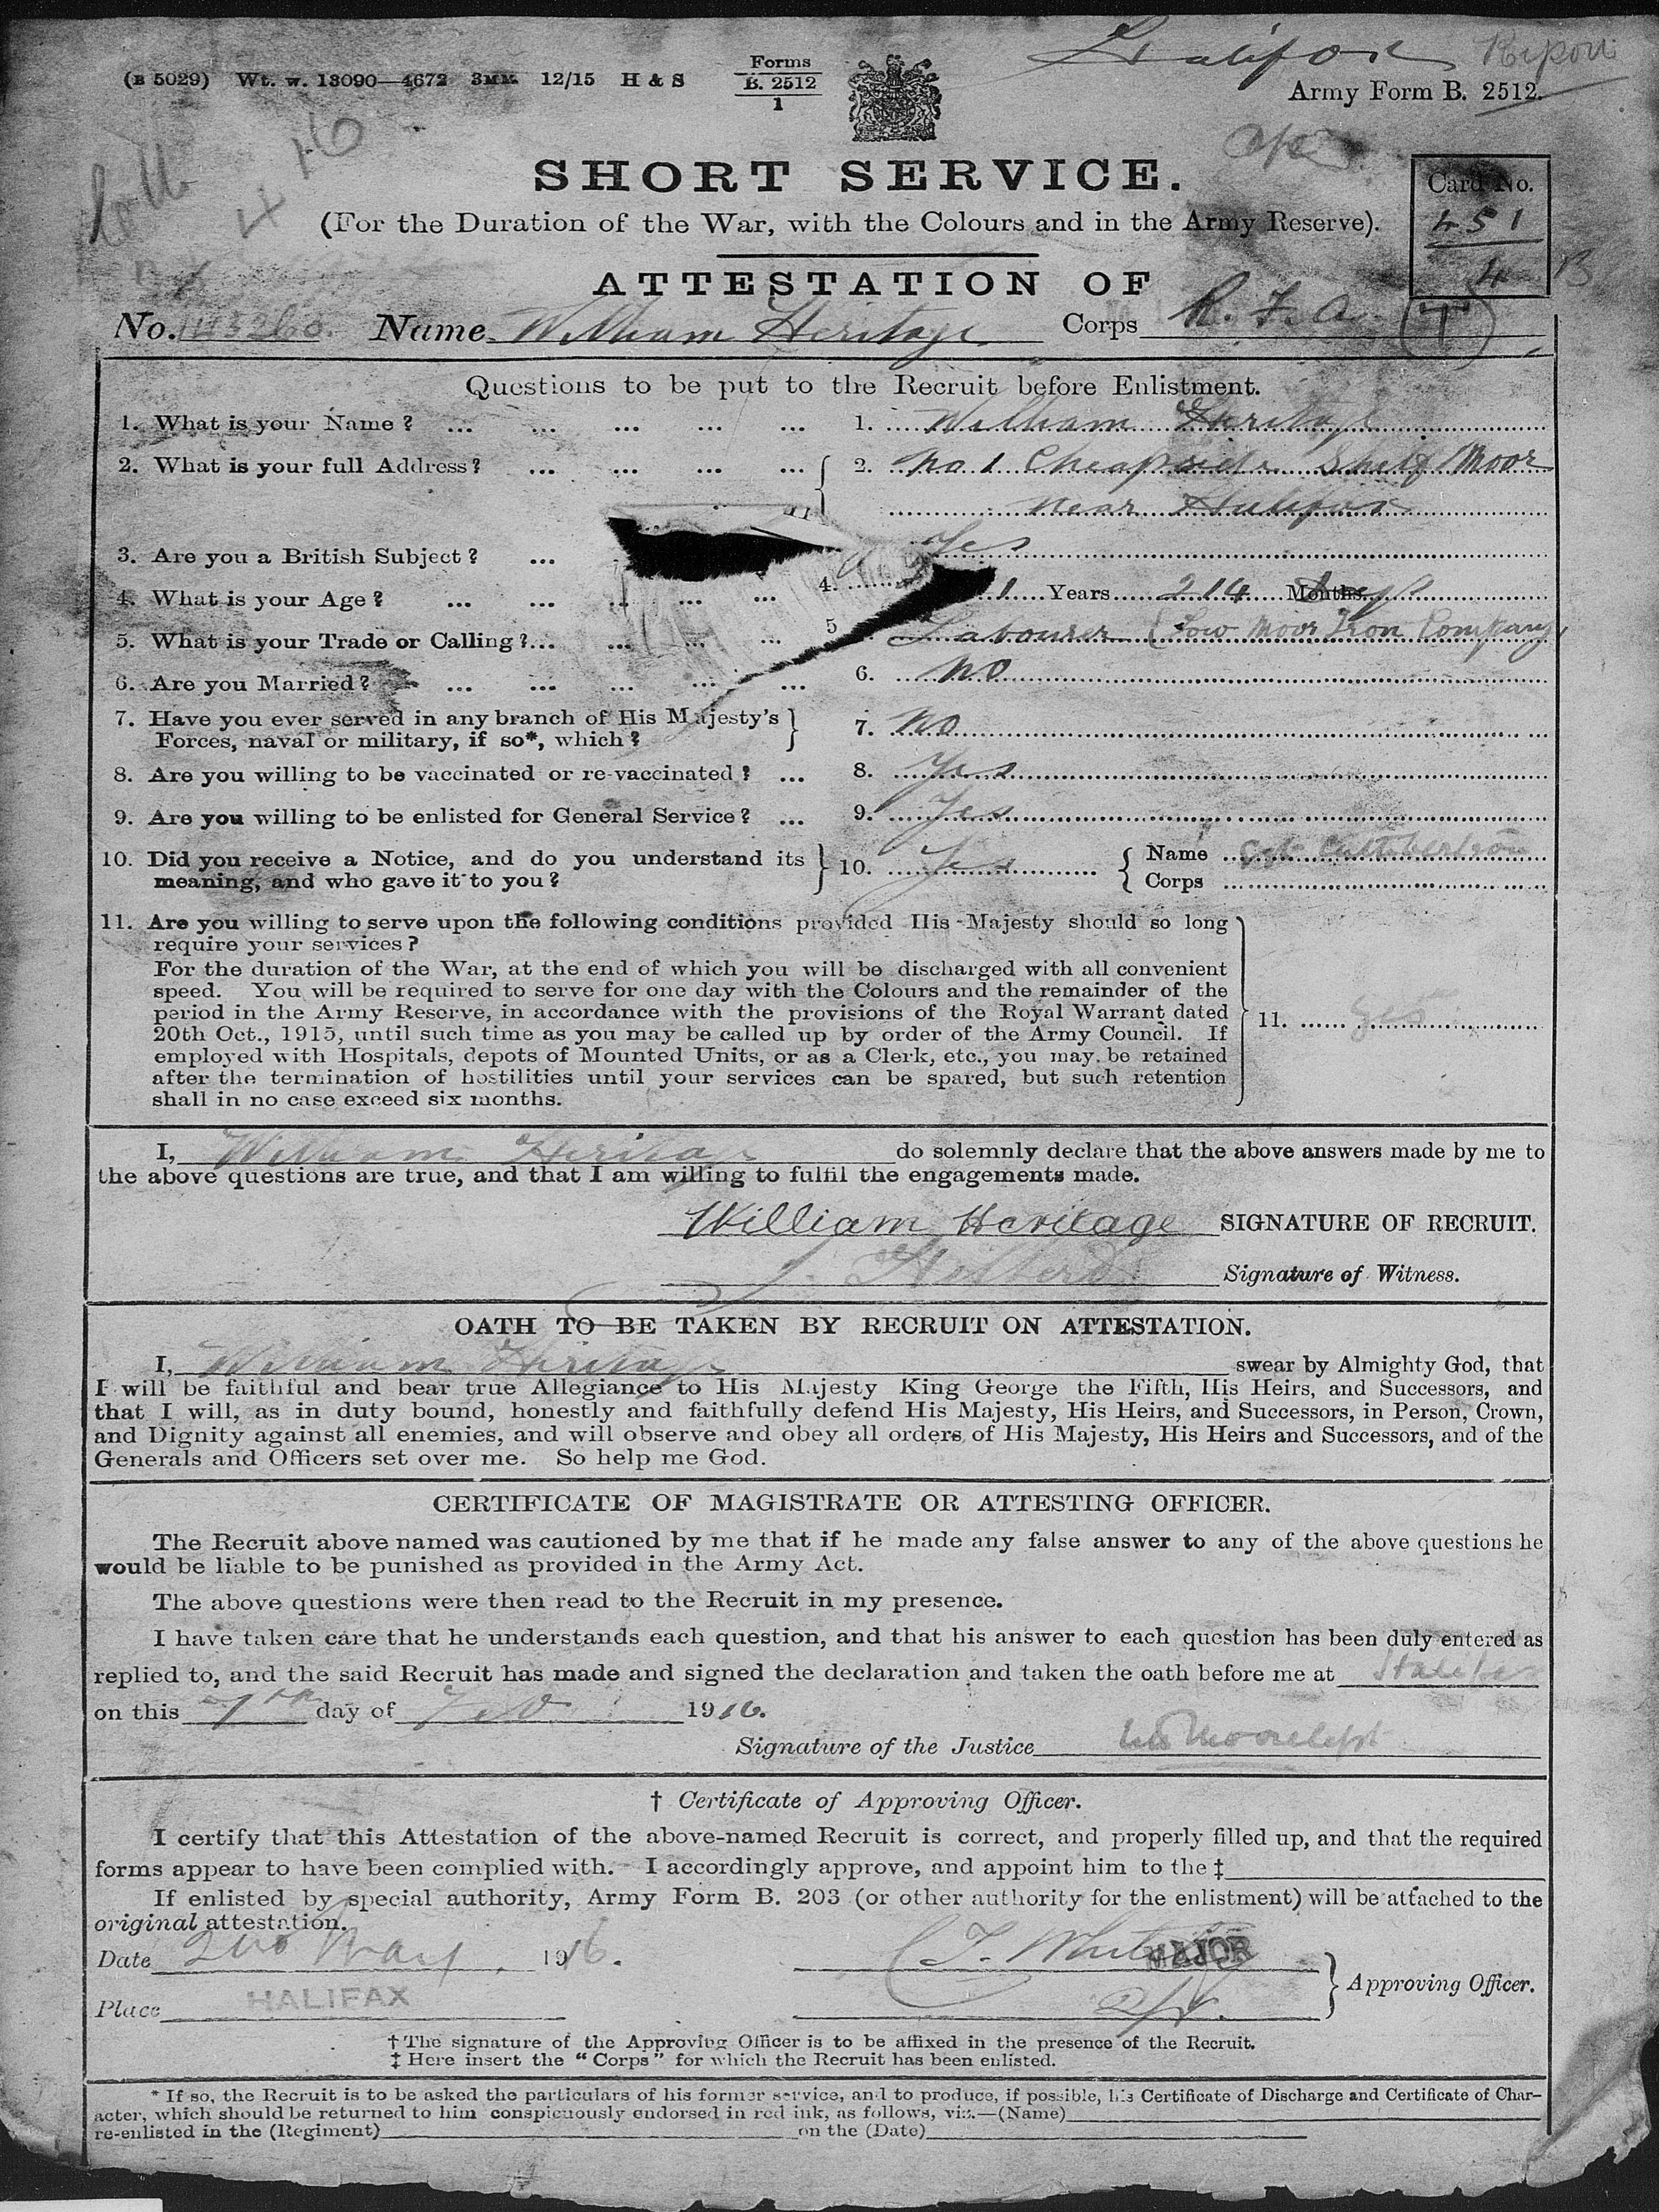 (B 5029) Wt. w. 13090—4672 3MM. 12/15 H & S
Forms
B. 2512
1
Halifax Ripon
Army Form B. 2512.
4 16
SHORT SERVICE.
Card No.
451
4 B
(For the Duration of the War, with the Colours and in the Army Reserve).
ATTESTATION OF
No. Name William Heritage Corps R. F. A. (T)
Questions to be put to the Recruit before Enlistment.
1. What is your Name? ... ... ... ... ... 1. William Heritage
2. What is your full Address? ... ... ... ... 2. No 1 Cheapside Shelf Moor
near Halifax
3. Are you a British Subject? ... Yes
4. What is your Age? ... ... ... ... ... 4. 1 Years 214 Months Days
5. What is your Trade or Calling?... ... ... ... 5 Labourer (Low Moor Iron Company)
6. Are you Married? ... ... ... ... ... 6. No
7. Have you ever served in any branch of His Majesty's
Forces, naval or military, if so*, which? 7. No
8. Are you willing to be vaccinated or re-vaccinated? ... 8. Yes
9. Are you willing to be enlisted for General Service? ... 9. Yes
10. Did you receive a Notice, and do you understand its
meaning, and who gave it to you? 10. Yes Name Cuthbertson
Corps
11. Are you willing to serve upon the following conditions provided His Majesty should so long
require your services?
For the duration of the War, at the end of which you will be discharged with all convenient
speed. You will be required to serve for one day with the Colours and the remainder of the
period in the Army Reserve, in accordance with the provisions of the Royal Warrant dated
20th Oct., 1915, until such time as you may be called up by order of the Army Council. If
employed with Hospitals, depots of Mounted Units, or as a Clerk, etc., you may be retained
after the termination of hostilities until your services can be spared, but such retention
shall in no case exceed six months.
11. Yes
I, William Heritage do solemnly declare that the above answers made by me to
the above questions are true, and that I am willing to fulfil the engagements made.
William Heritage SIGNATURE OF RECRUIT.
Signature of Witness.
OATH TO BE TAKEN BY RECRUIT ON ATTESTATION.
I, William Heritage swear by Almighty God, that
I will be faithful and bear true Allegiance to His Majesty King George the Fifth, His Heirs, and Successors, and
that I will, as in duty bound, honestly and faithfully defend His Majesty, His Heirs, and Successors, in Person, Crown,
and Dignity against all enemies, and will observe and obey all orders of His Majesty, His Heirs and Successors, and of the
Generals and Officers set over me. So help me God.
CERTIFICATE OF MAGISTRATE OR ATTESTING OFFICER.
The Recruit above named was cautioned by me that if he made any false answer to any of the above questions he
would be liable to be punished as provided in the Army Act.
The above questions were then read to the Recruit in my presence.
I have taken care that he understands each question, and that his answer to each question has been duly entered as
replied to, and the said Recruit has made and signed the declaration and taken the oath before me at Halifax
on this 7th day of Feb 1916.
Signature of the Justice
† Certificate of Approving Officer.
I certify that this Attestation of the above-named Recruit is correct, and properly filled up, and that the required
forms appear to have been complied with. I accordingly approve, and appoint him to the ‡
If enlisted by special authority, Army Form B. 203 (or other authority for the enlistment) will be attached to the
original attestation.
Date 2nd May 1916. MAJOR
Approving Officer.
Place HALIFAX
† The signature of the Approving Officer is to be affixed in the presence of the Recruit.
‡ Here insert the "Corps" for which the Recruit has been enlisted.
* If so, the Recruit is to be asked the particulars of his former service, and to produce, if possible, his Certificate of Discharge and Certificate of Char-
acter, which should be returned to him conspicuously endorsed in red ink, as follows, viz.—(Name)
re-enlisted in the (Regiment) on the (Date)